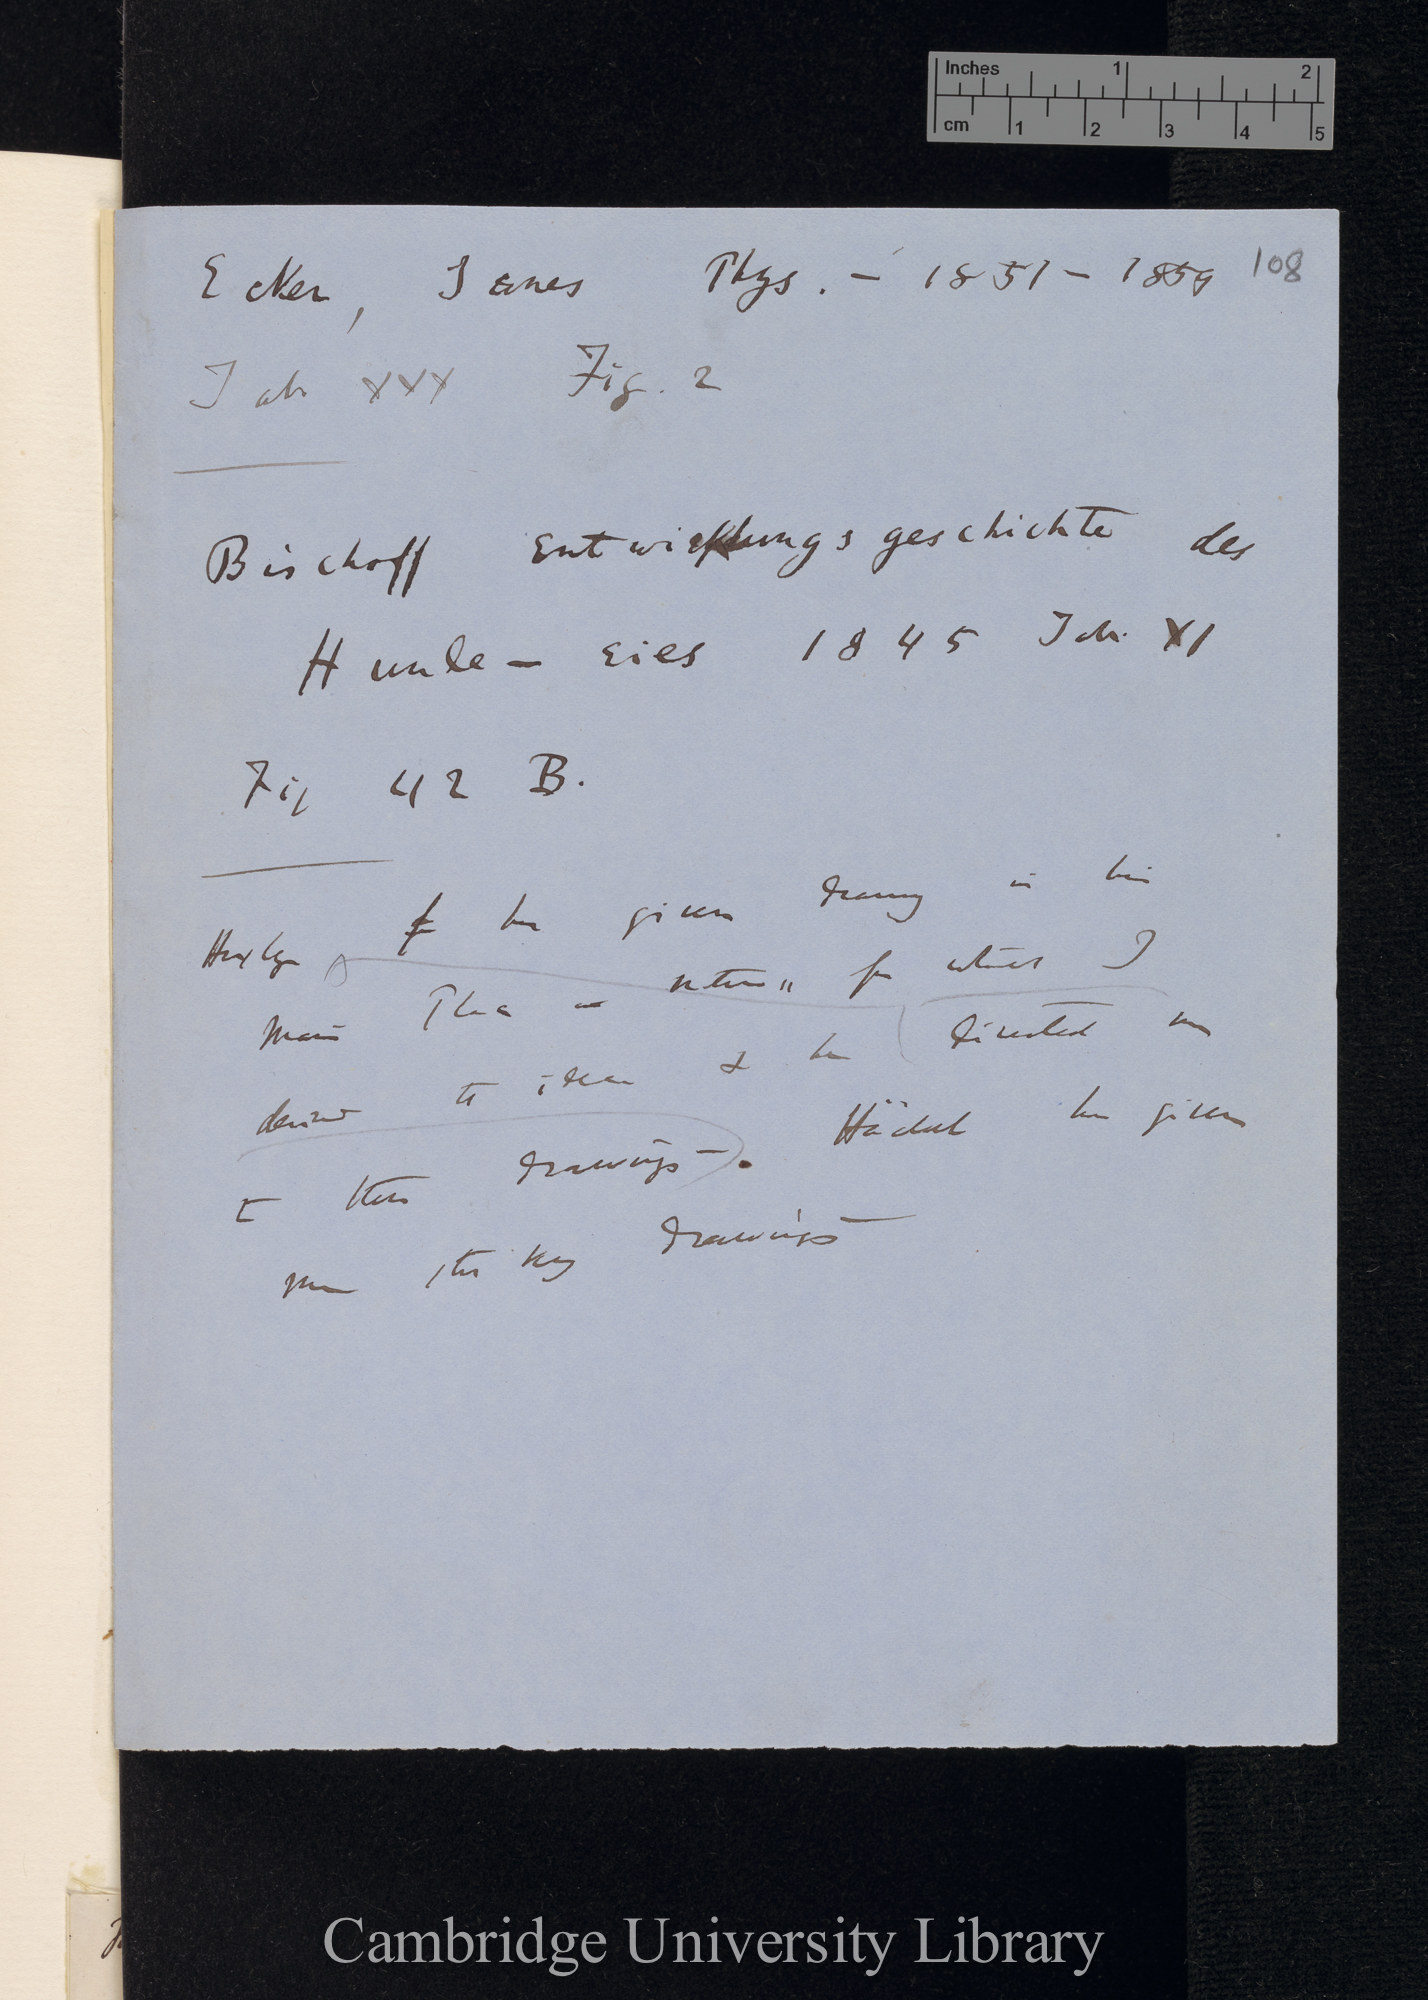 Inches 1 2
cm 1 2 3 4 5
108
Ecker, Icones Phys. — 1851–1859
Tab XXX Fig. 2
Bischoff Entwicklungsgeschichte des
Hunde – Eies 1845 Tab. XI
Fig 42 B.
Huxley has given drawing in his
Mans Place in nature" for which I
desired the idea & he directed me
to these drawings –. Häckel has given
drawings –
Cambridge University Library